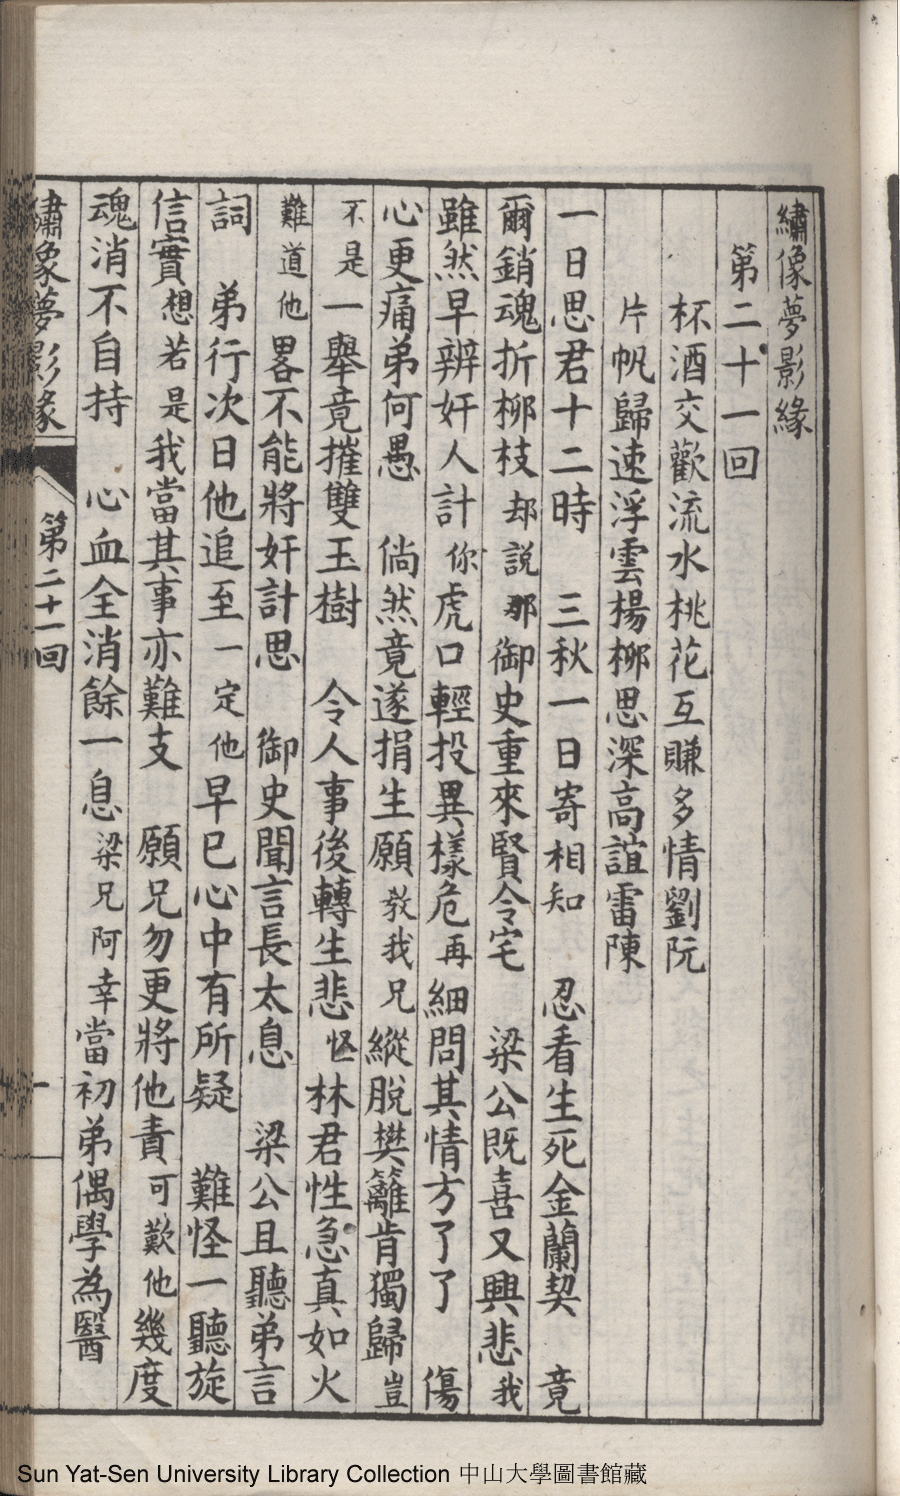 繡像夢影緣
第二十一回
杯酒交歡流水桃花互賺多情劉阮
片帆歸速浮雲楊柳思深高誼雷陳
一日思君十二時　三秋一日寄相知　忍看生死金蘭契　竟
爾銷魂折柳枝却說那御史重來賢令宅　梁公既喜又興悲我
雖然早辨奸人計你虎口輕投異樣危再細問其情方了了　傷
心更痛弟何愚　倘然竟遂捐生願教我兄縱脫樊籬肯獨歸豈
不是一舉竟摧雙玉樹　令人事後轉生悲怪林君性急真如火
難道他畧不能將奸計思　御史聞言長太息　梁公且聽弟言
詞　弟行次日他追至一定他早已心中有所疑　難怪一聽旋
信實想若是我當其事亦難支　願兄勿更將他責可歎他幾度
魂消不自持　心血全消餘一息梁兄阿幸當初弟偶學為醫
繡像夢影緣　第二十一回　一
Sun Yat-Sen University Library Collection 中山大學圖書館藏